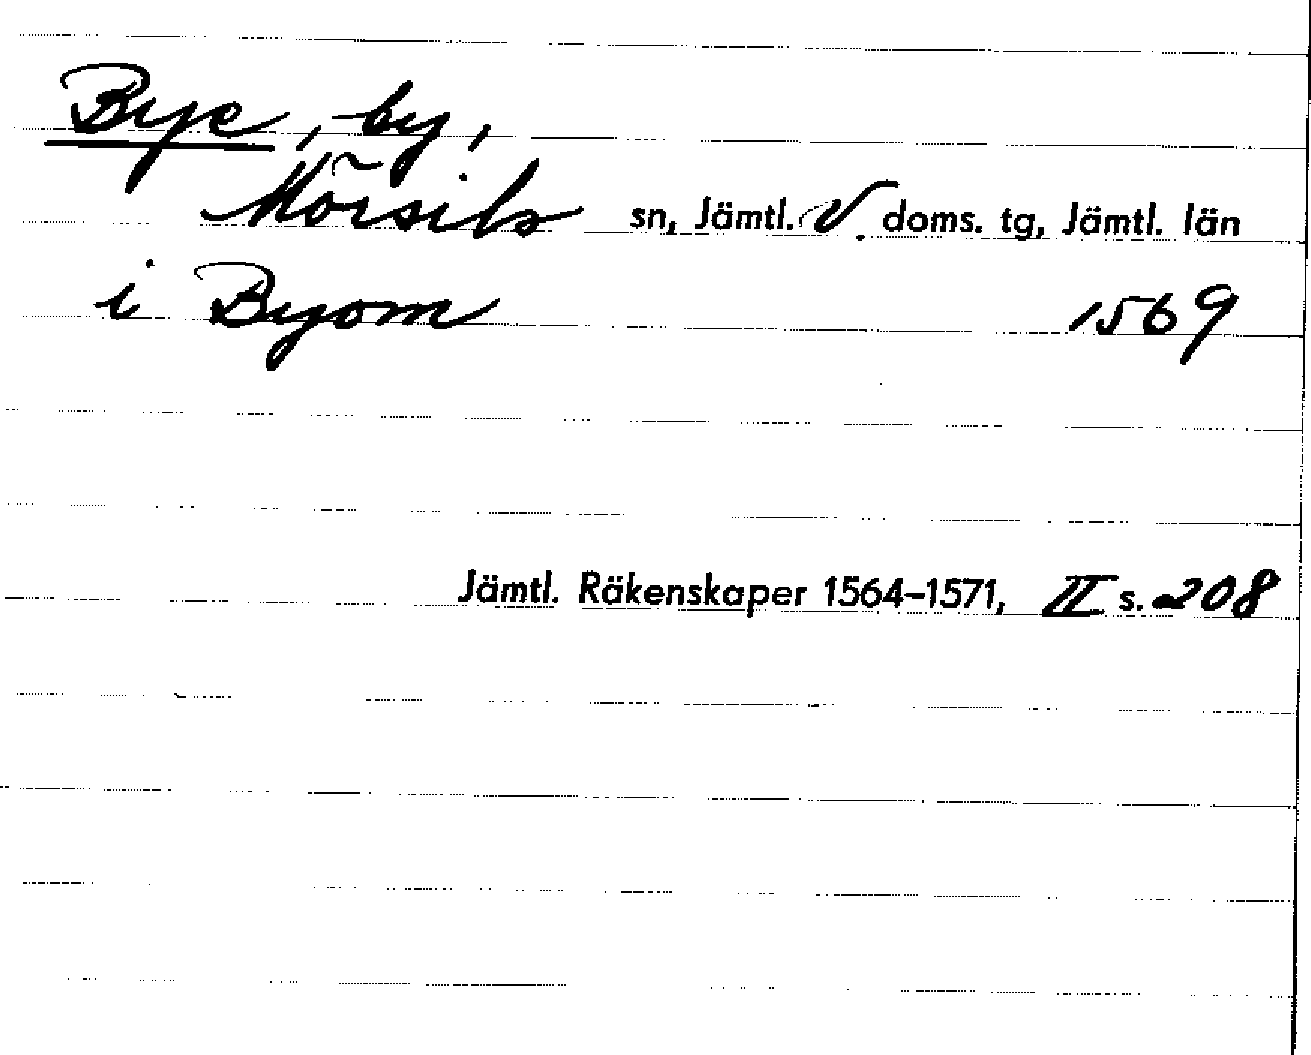 Bye, by,
Mörsils sn, Jämtl. V. doms. tg, Jämtl. län
i Byom 1569
Jämtl. Räkenskaper 1564-1571, II s. 208